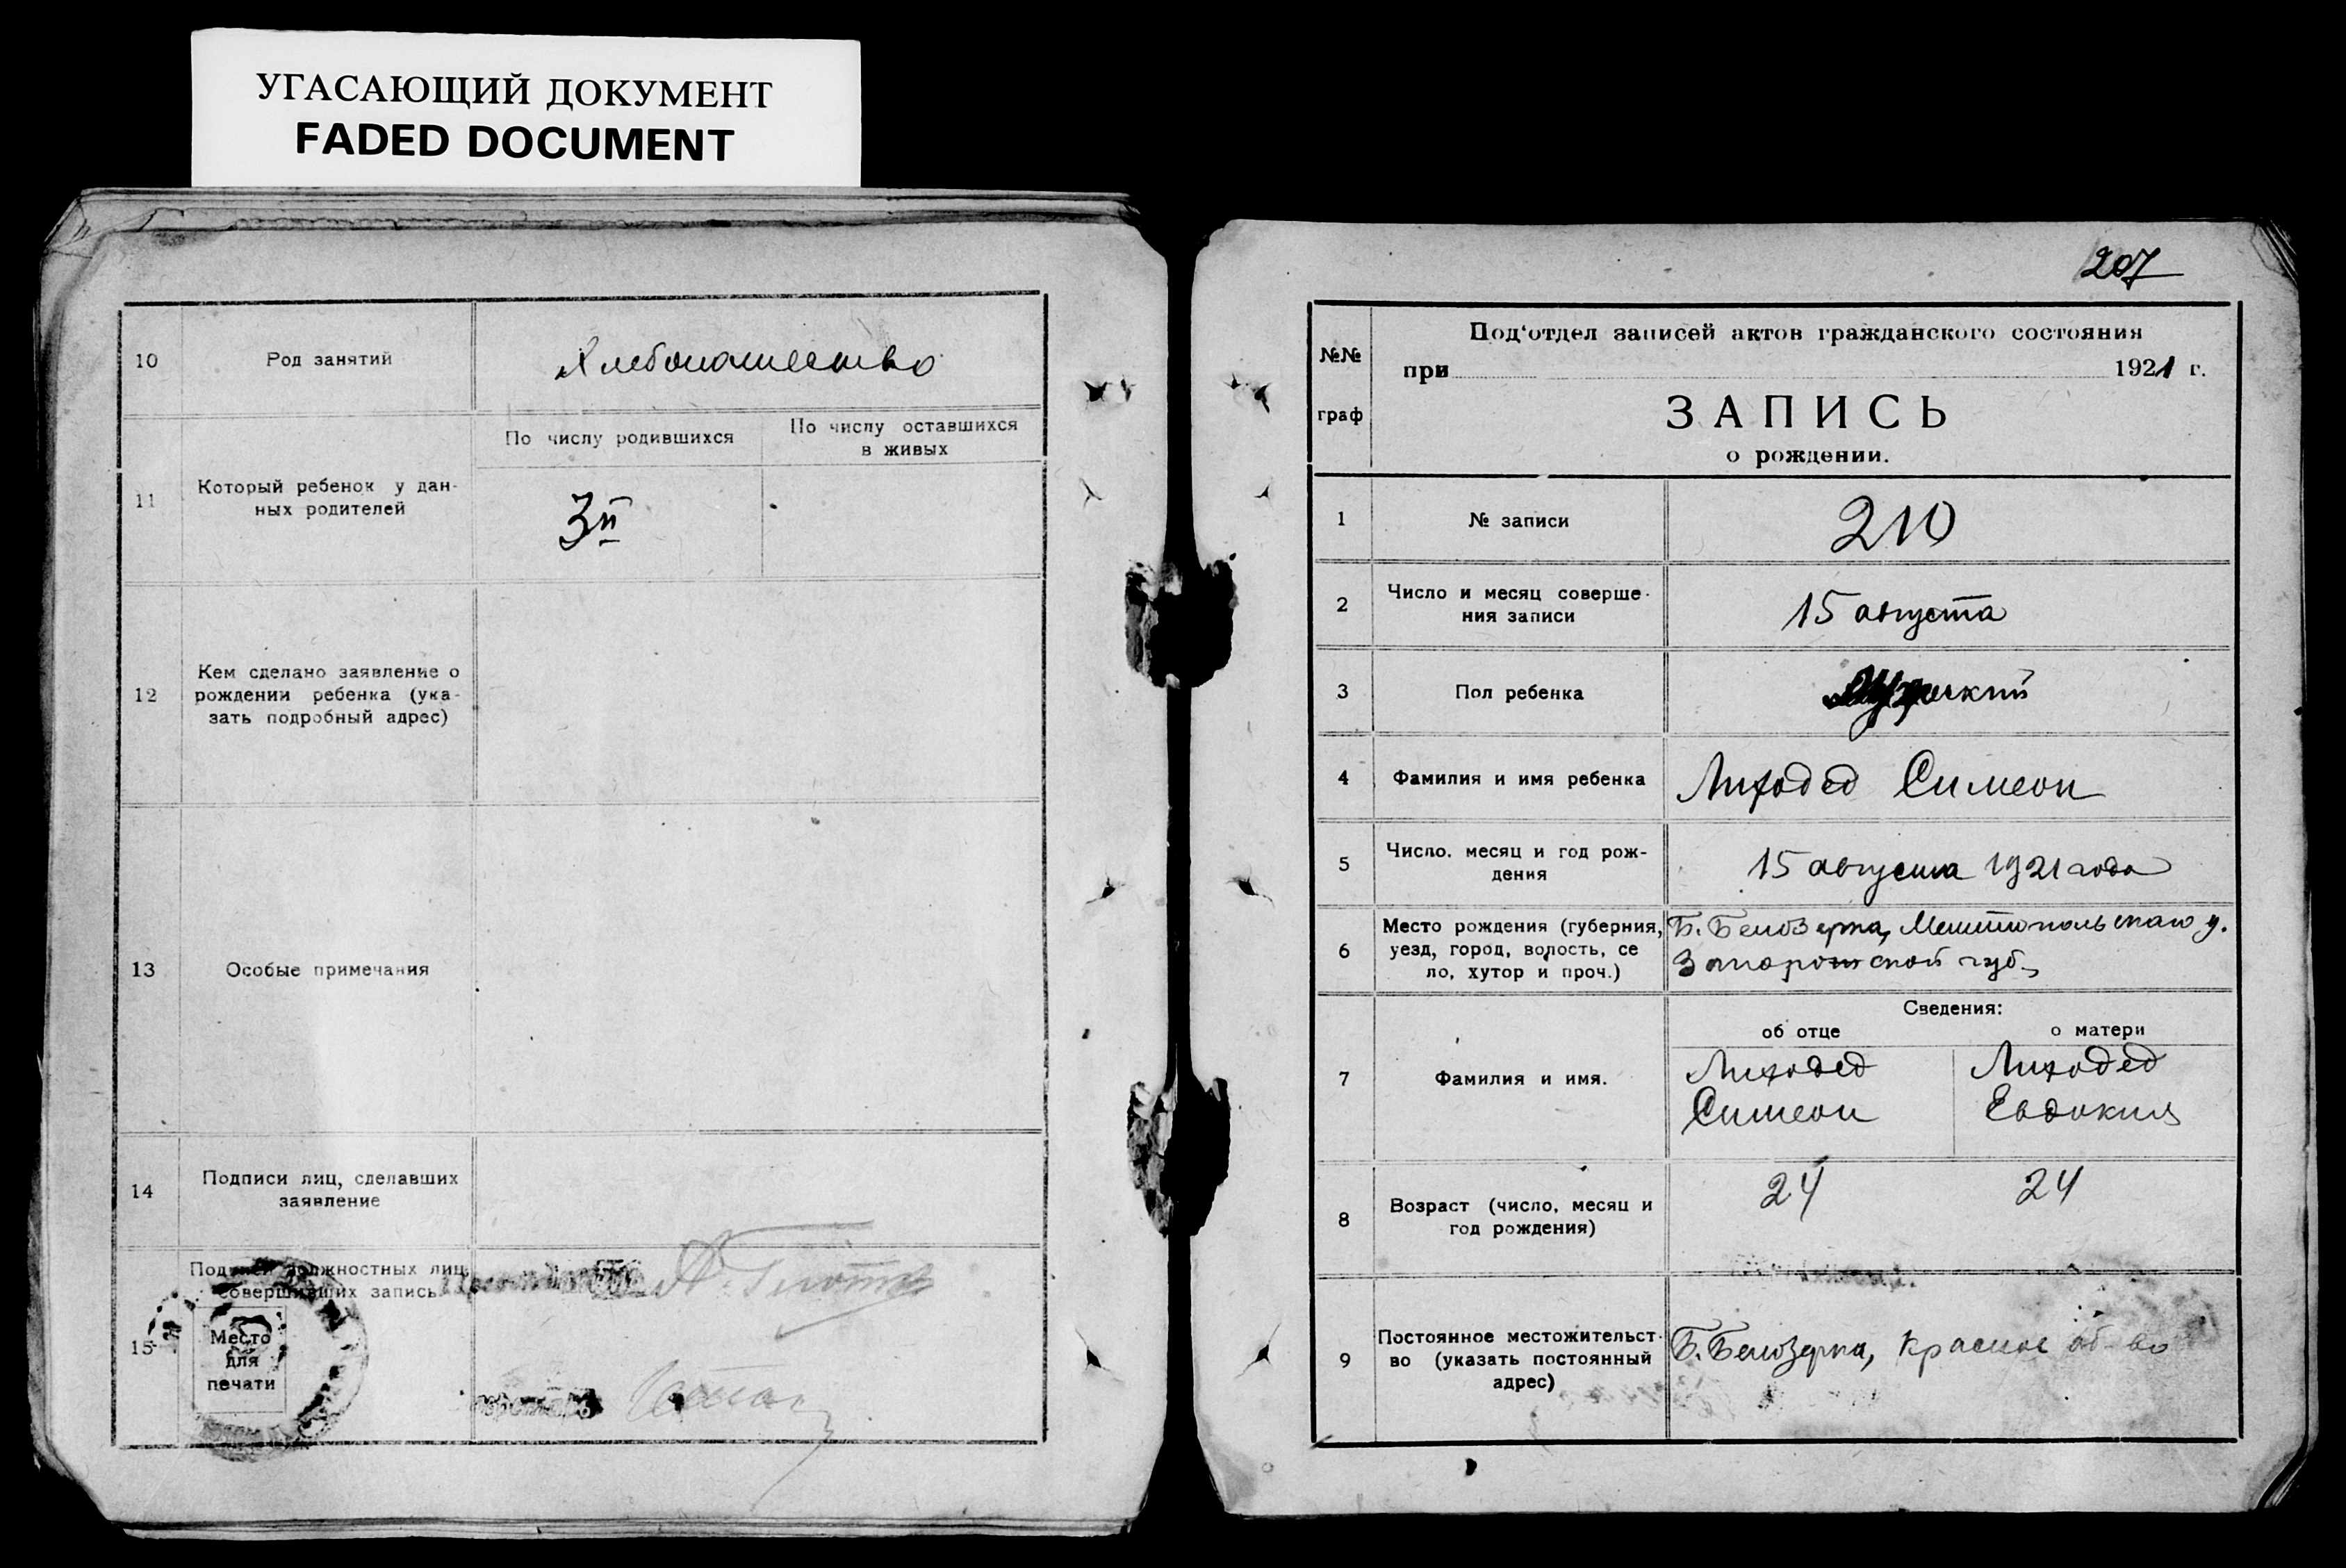 УГАСАЮЩИЙ ДОКУМЕНТ
FADED DOCUMENT
10
Род занятий
Хлебопашество
11
Который ребенок у дан-
ных родителей
По числу родившихся
По числу оставшихся
в живых
3й
12
Кем сделано заявление о
рождении ребенка (ука-
зать подробный адрес)
13
Особые примечания
14
Подписи лиц, сделавших
заявление
15
Подписи должностных лиц,
совершивших запись.
Место
для
печати
207
№№
граф
Под‘отдел записей актов гражданского состояния
при 1921 г.
ЗАПИСЬ
о рождении.
1
№ записи
210
2
Число и месяц соверше-
ния записи
15 августа
3
Пол ребенка
Мужский
4
Фамилия и имя ребенка
Лиходед Симеон
5
Число. месяц и год рож-
дения
15 августа 1921 года
6
Место рождения (губерния,
уезд, город, волость, се
ло, хутор и проч.)
Б. Белозерка, Мелитопольскаго у.
Запорожской губ.
Сведения:
об отце
о матери
7
Фамилия и имя.
Лиходед
Симеон
Лиходед
Евдокия
8
Возраст (число, месяц и
год рождения)
24
24
9
Постоянное местожительст-
во (указать постоянный
адрес)
Б. Белозерка, Красное об-во